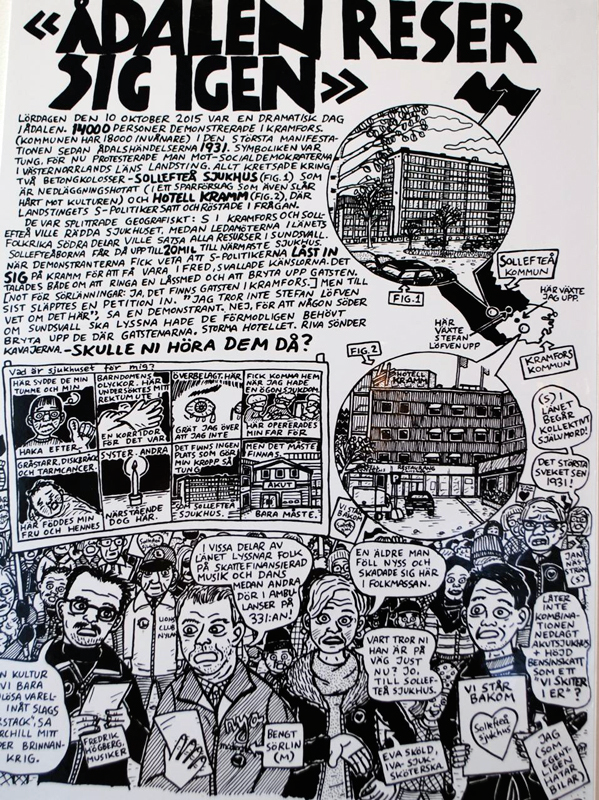 «ÅDALEN RESER
SIG IGEN»
LÖRDAGEN DEN 10 OKTOBER 2015 VAR EN DRAMATISK DAG
I ÅDALEN. 14000 PERSONER DEMONSTRERADE I KRAMFORS.
(KOMMUNEN HAR 18000 INVÅNARE) I DEN STÖRSTA MANIFESTA-
TIONEN SEDAN ÅDALSHÄNDELSERNA 1931. SYMBOLIKEN VAR
TUNG, FÖR NU PROTESTERADE MAN MOT SOCIALDEMOKRATERNA
I VÄSTERNORRLANDS LÄNS LANDSTING. ALLT KRETSADE KRING
TVÅ BETONGKOLOSSER - SOLLEFTEÅ SJUKHUS (FIG. 1) SOM
ÄR NEDLÄGGNINGSHOTAT (I ETT SPARFÖRSLAG SOM ÄVEN SLÅR
HÅRT MOT KULTUREN) OCH HOTELL KRAMM (FIG. 2), DÄR
LANDSTINGETS S-POLITIKER SATT OCH RÖSTADE I FRÅGAN.
DE VAR SPLITTRADE GEOGRAFISKT: S I KRAMFORS OCH SOLL-
EFTEÅ VILLE RÄDDA SJUKHUSET, MEDAN LEDAMÖTERNA I LÄNETS
FOLKRIKA SÖDRA DELAR VILLE SATSA ALLA RESURSER I SUNDSVALL.
SOLLEFTEÅBORNA FÅR DÅ UPP TILL 20 MIL TILL NÄRMASTE SJUKHUS.
NÄR DEMONSTRANTERNA FICK VETA ATT S-POLITIKERNA LÅST IN
SIG PÅ KRAMM FÖR ATT FÅ VARA I FRED, SVALLADE KÄNSLORNA. DET
TALADES BÅDE OM ATT RINGA EN LÅSSMED OCH ATT BRYTA UPP GATSTEN.
[NOT FÖR SÖRLÄNNINGAR: JA, DET FINNS GATSTEN I KRAMFORS.] MEN TILL
SIST SLÄPPTES EN PETITION IN. "JAG TROR INTE STEFAN LÖFVEN
VET OM DET HÄR", SA EN DEMONSTRANT. NEJ, FÖR ATT NÅGON SÖDER
OM SUNDSVALL SKA LYSSNA HADE DE FÖRMODLIGEN BEHÖVT
BRYTA UPP DE DÄR GATSTENARNA. STORMA HOTELLET. RIVA SÖNDER
KAVAJERNA. - SKULLE NI HÖRA DEM DÅ?
FIG. 1
SOLLEFTEÅ
KOMMUN
HÄR VÄXTE
JAG UPP.
HÄR
VÄXTE
STEFAN
LÖFVEN UPP
KRAMFORS
KOMMUN
FIG. 2
HOTELL
KRAMM
RESTAURANG
Vad är sjukhuset för mig?
HÄR SYDDE DE MIN
TUMME OCH MIN
HAKA EFTER
BARNDOMENS
OLYCKOR. HÄR
UNDERSÖKTES MITT
REKTUM UTE I
EN KORRIDOR
FÖR DET VAR
ÖVERBELAGT. HÄR
GRÄT JAG ÖVER
ATT JAG INTE
FICK KOMMA HEM
NÄR JAG HADE
EN ÖGONSJUKDOM.
HÄR OPERERADES
MIN FAR FÖR
GRÅSTARR, DISKBRÅCK
OCH TARMCANCER.
HÄR FÖDDES MIN
FRU OCH HENNES
SYSTER. ANDRA
NÄRSTÅENDE
DOG HÄR.
DET FINNS INGEN
PLATS SOM GÖR
MIN KROPP SÅ
MJUK SOM
SOLLEFTEÅ
SJUKHUS.
MEN DET MÅSTE
FINNAS.
AKUT
BARA MÅSTE.
VI STÅR
BAKOM
(S) I
LÄNET
BEGÅR
KOLLEKTIVT
SJÄLVMORD!
DET STÖRSTA
SVEKET SEN
1931!
JAN
NÄSSTRÖM
(S)
I VISSA DELAR AV
LÄNET LYSSNAR FOLK
PÅ SKATTEFINANSIERAD
MUSIK OCH DANS
MEDAN ANDRA
DÖR I AMBU-
LANSER PÅ
331:AN!
EN ÄLDRE MAN
FÖLL NYSS OCH
SKADADE SIG HÄR
I FOLKMASSAN.
VART TROR NI
HAN ÄR PÅ
VÄG JUST
NU? JO,
TILL SOLLEF-
TEÅ SJUKHUS.
LÅTER
INTE
KOMBINA-
TIONEN
NEDLAGT
AKUTSJUKHUS
+ HÖJD
BENSINSKATT
SOM ETT
"VI SKITER
I ER"?
LIONS
CLUB
NYLAND
N KULTUR
VI BARA
LÖSA VAREL-
INÅT SLAGS
STACK", SA
RCHILL MITT
PER BRINNAN-
KRIG.
FREDRIK
HÖGBERG,
MUSIKER
BENGT
SÖRLIN
(M)
EVA SKÖLD,
IVA-SJUK-
SKÖTERSKA.
VI STÅR
BAKOM
Sollefteå
sjukhus
JAG
(SOM
EGENT-
LIGEN
HATAR
BILAR)